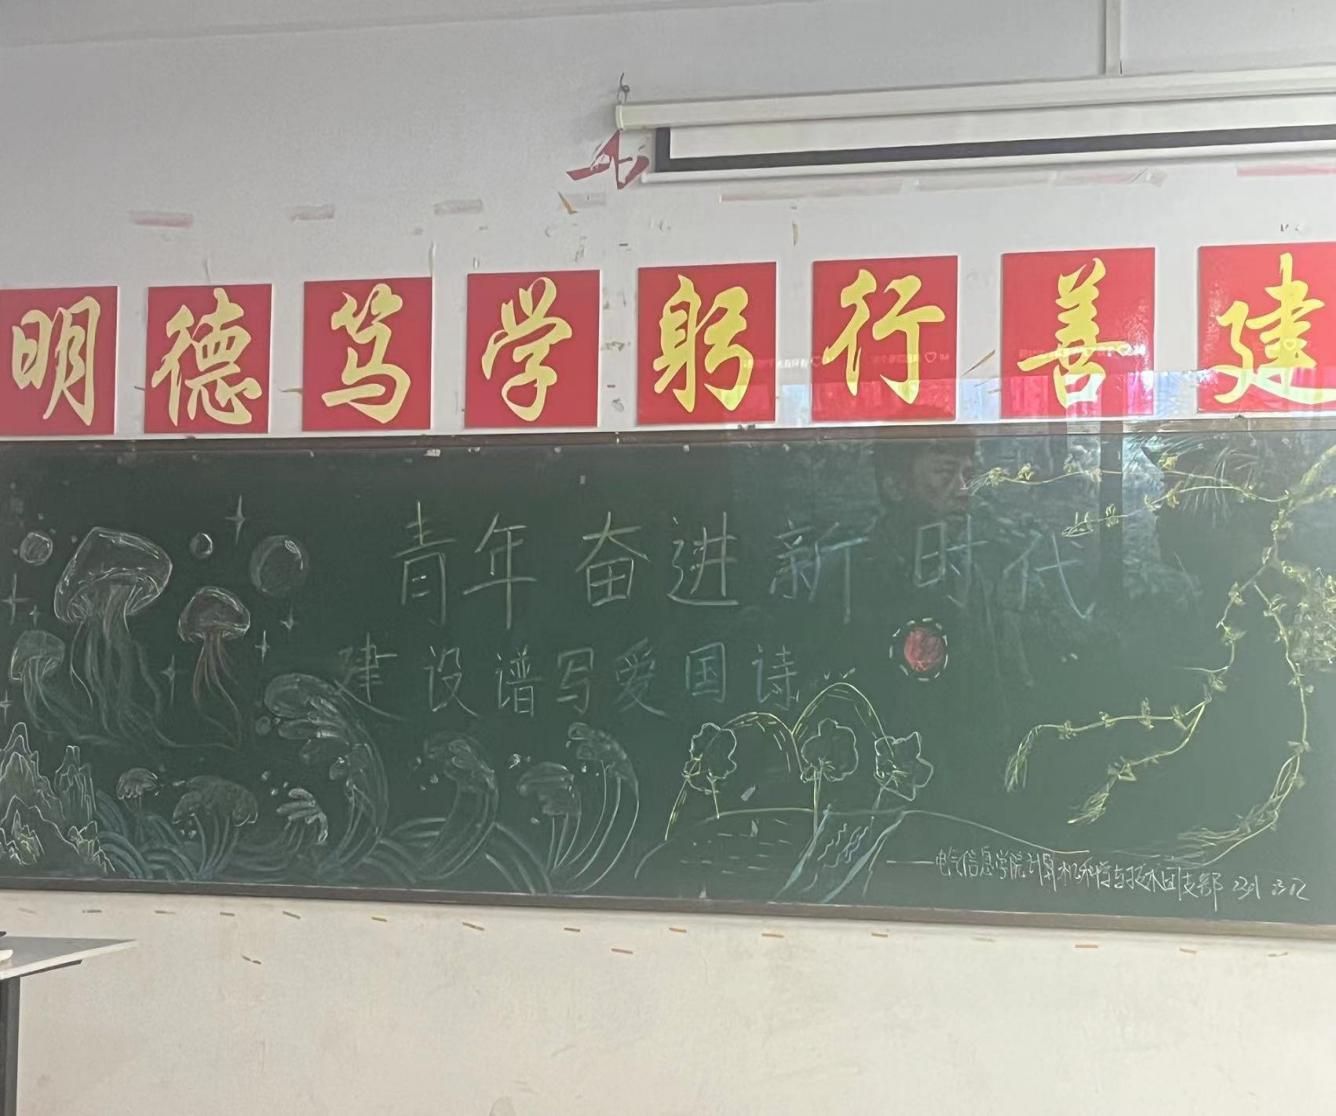 明德笃学躬行善建
青年奋进新时代
建设谱写爱国诗...
——电气信息学院计算机科学与技术团支部